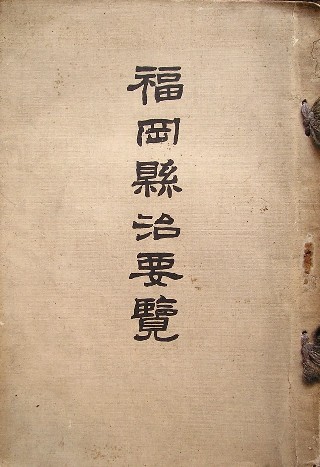 福岡縣治要覽